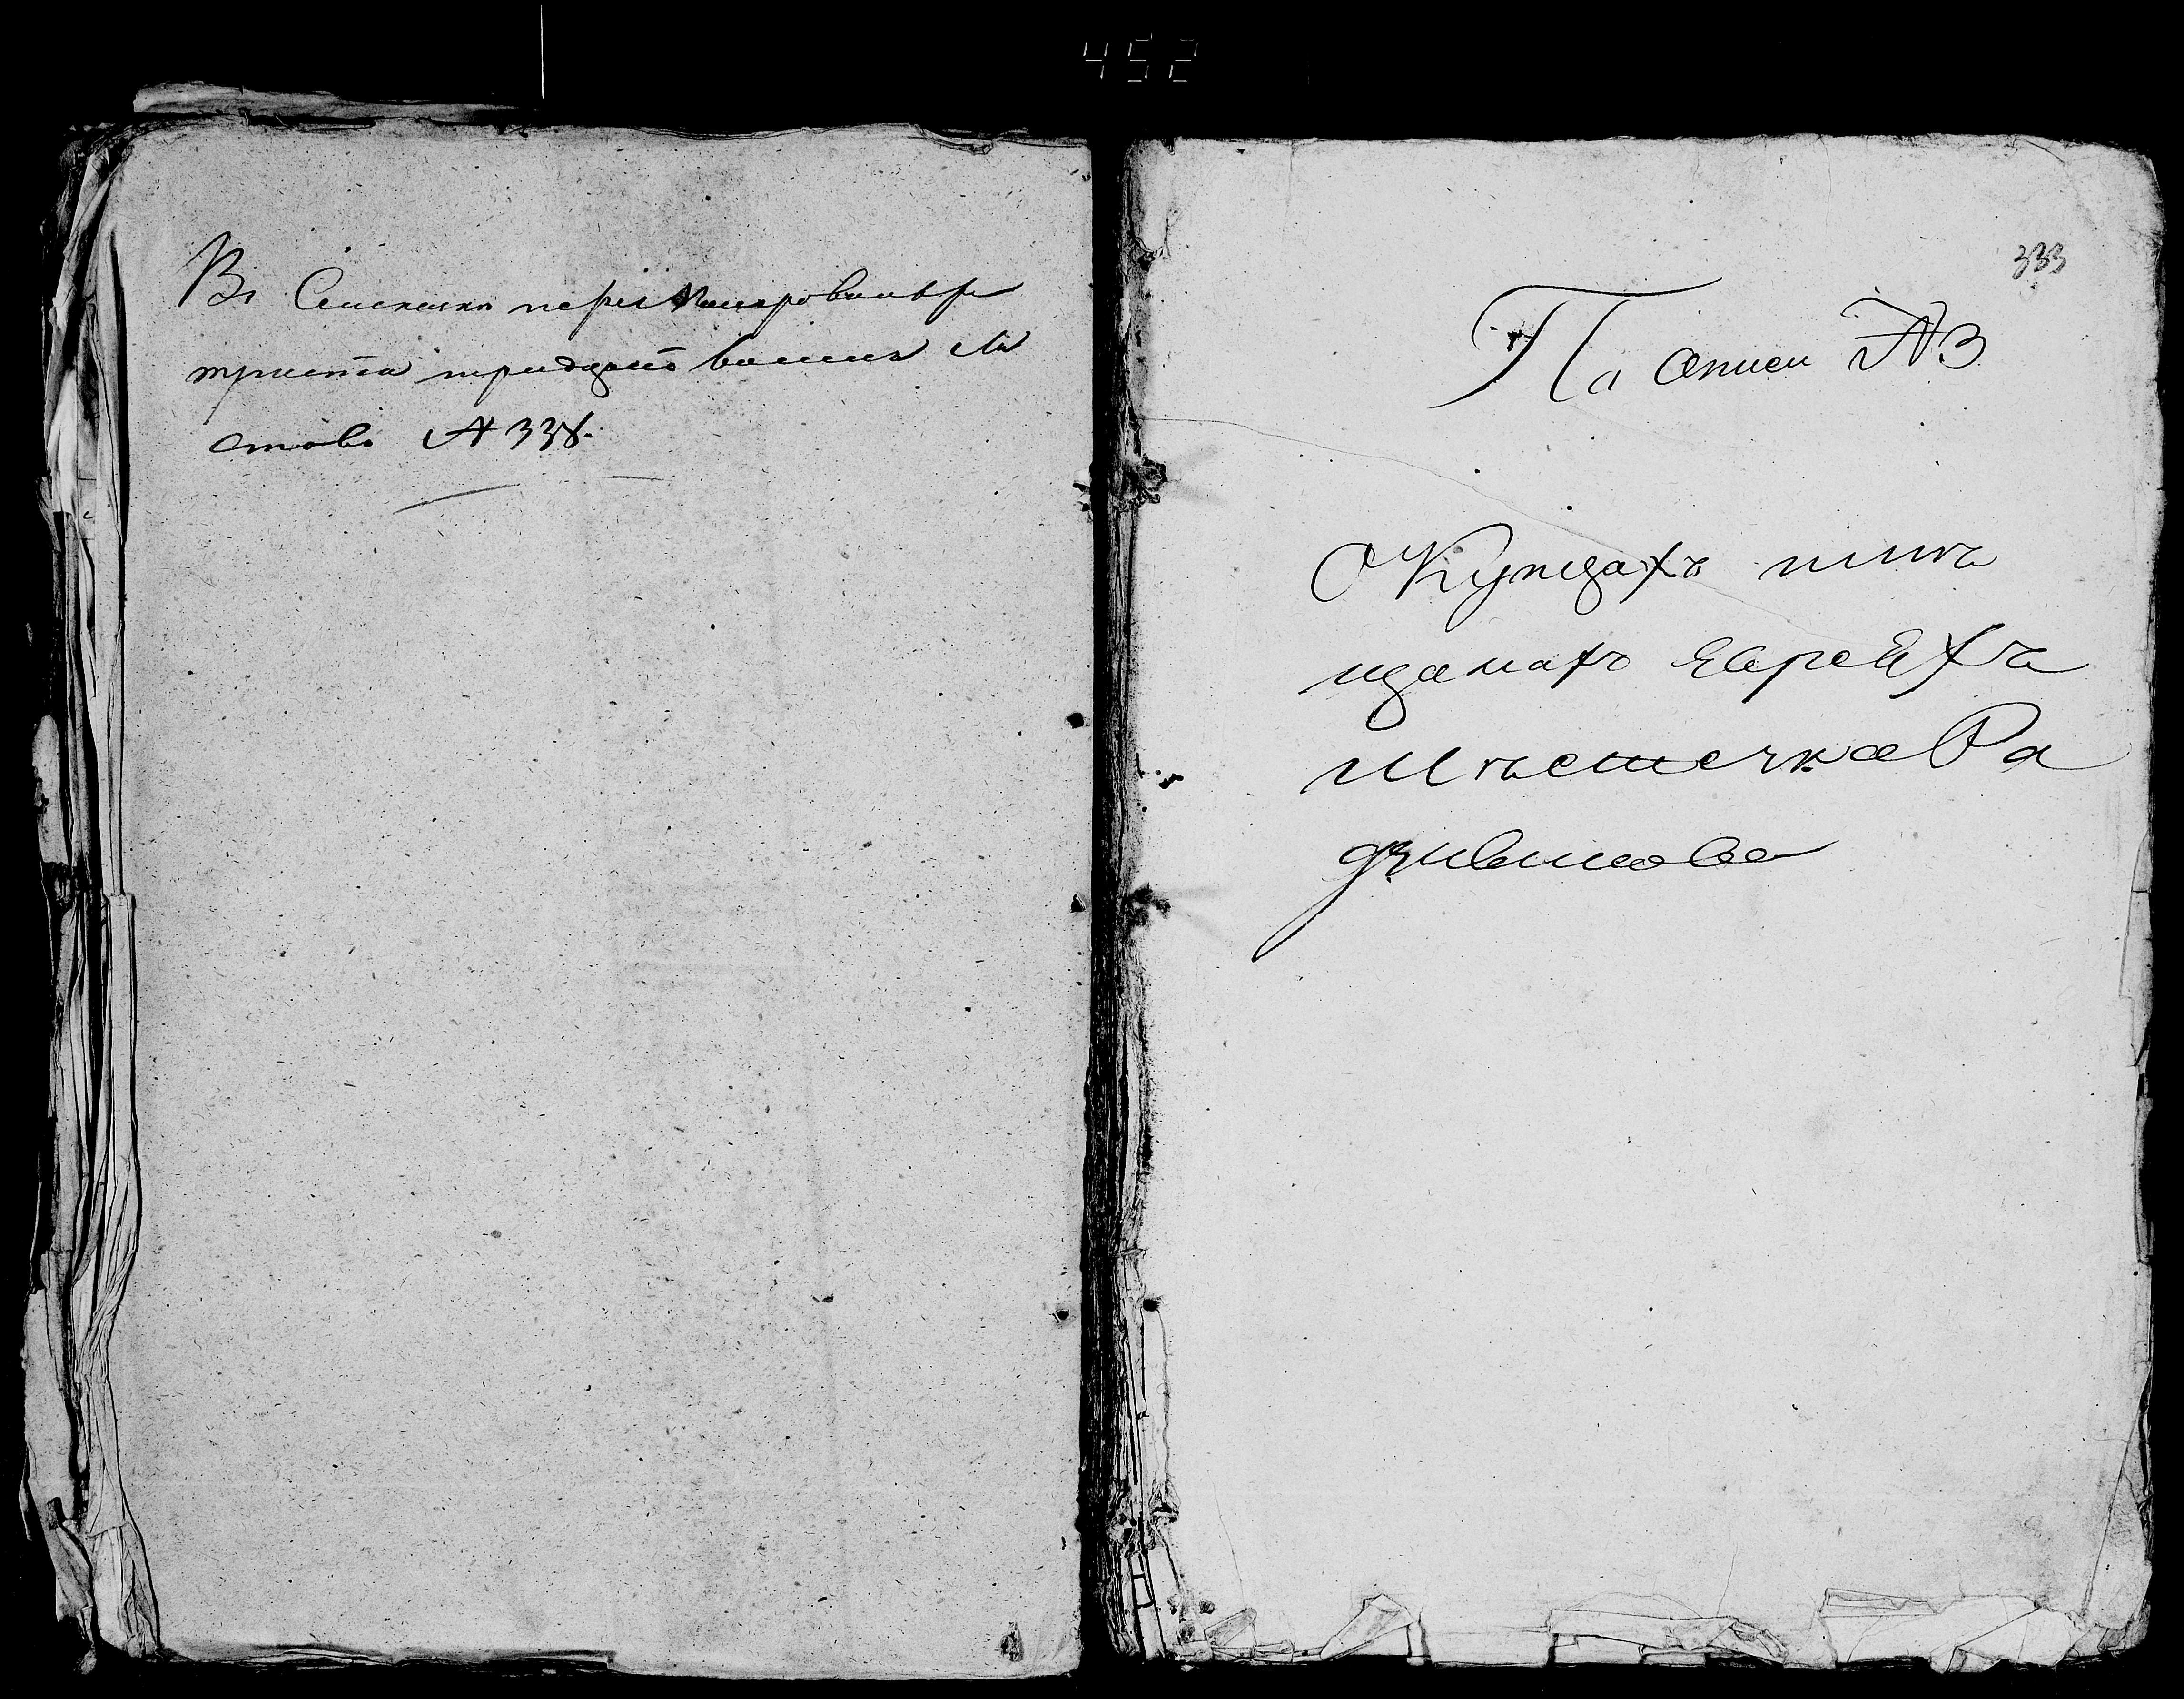 452
Въ Списке перенумеровано
триста тридцать восемь ли
стовъ № 338.
333
По описи № 3
О Купцахъ мѣ
щанахъ Евреяхъ
Мѣстечка Ра
дзивилова